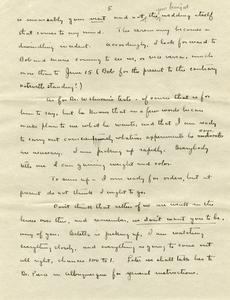 5
is invariably your visit and not the wedding itself
that comes to my mind. The ceremony becomes a
dwindling incident. Accordingly, I look forward to
Bob and mama coming to see us, or vice versa, much
more than to June 15 (Bob for the present to the contrary
notwithstanding!)
As for Dr. tests - of course that is for
him to say, but he knows that in a few words he can
make plain to me what he wants, and that I am ready
to carry out conscientiously whatever experiments he
are necessary. I am picking up rapidly. Everybody
tells me I am gaining weight and color.
To sum up - I am ready for orders, but at
present do not think I ought to go.
Don't think that either of us are upset in this
over this, and remember, we don't want you to be,
any of you. Estelle is picking up, I am watching
everything closely, and everything is going to come out
all right, chances 100 to 1. Later we shall take her to
Dr. in Albuquerque for general instructions.